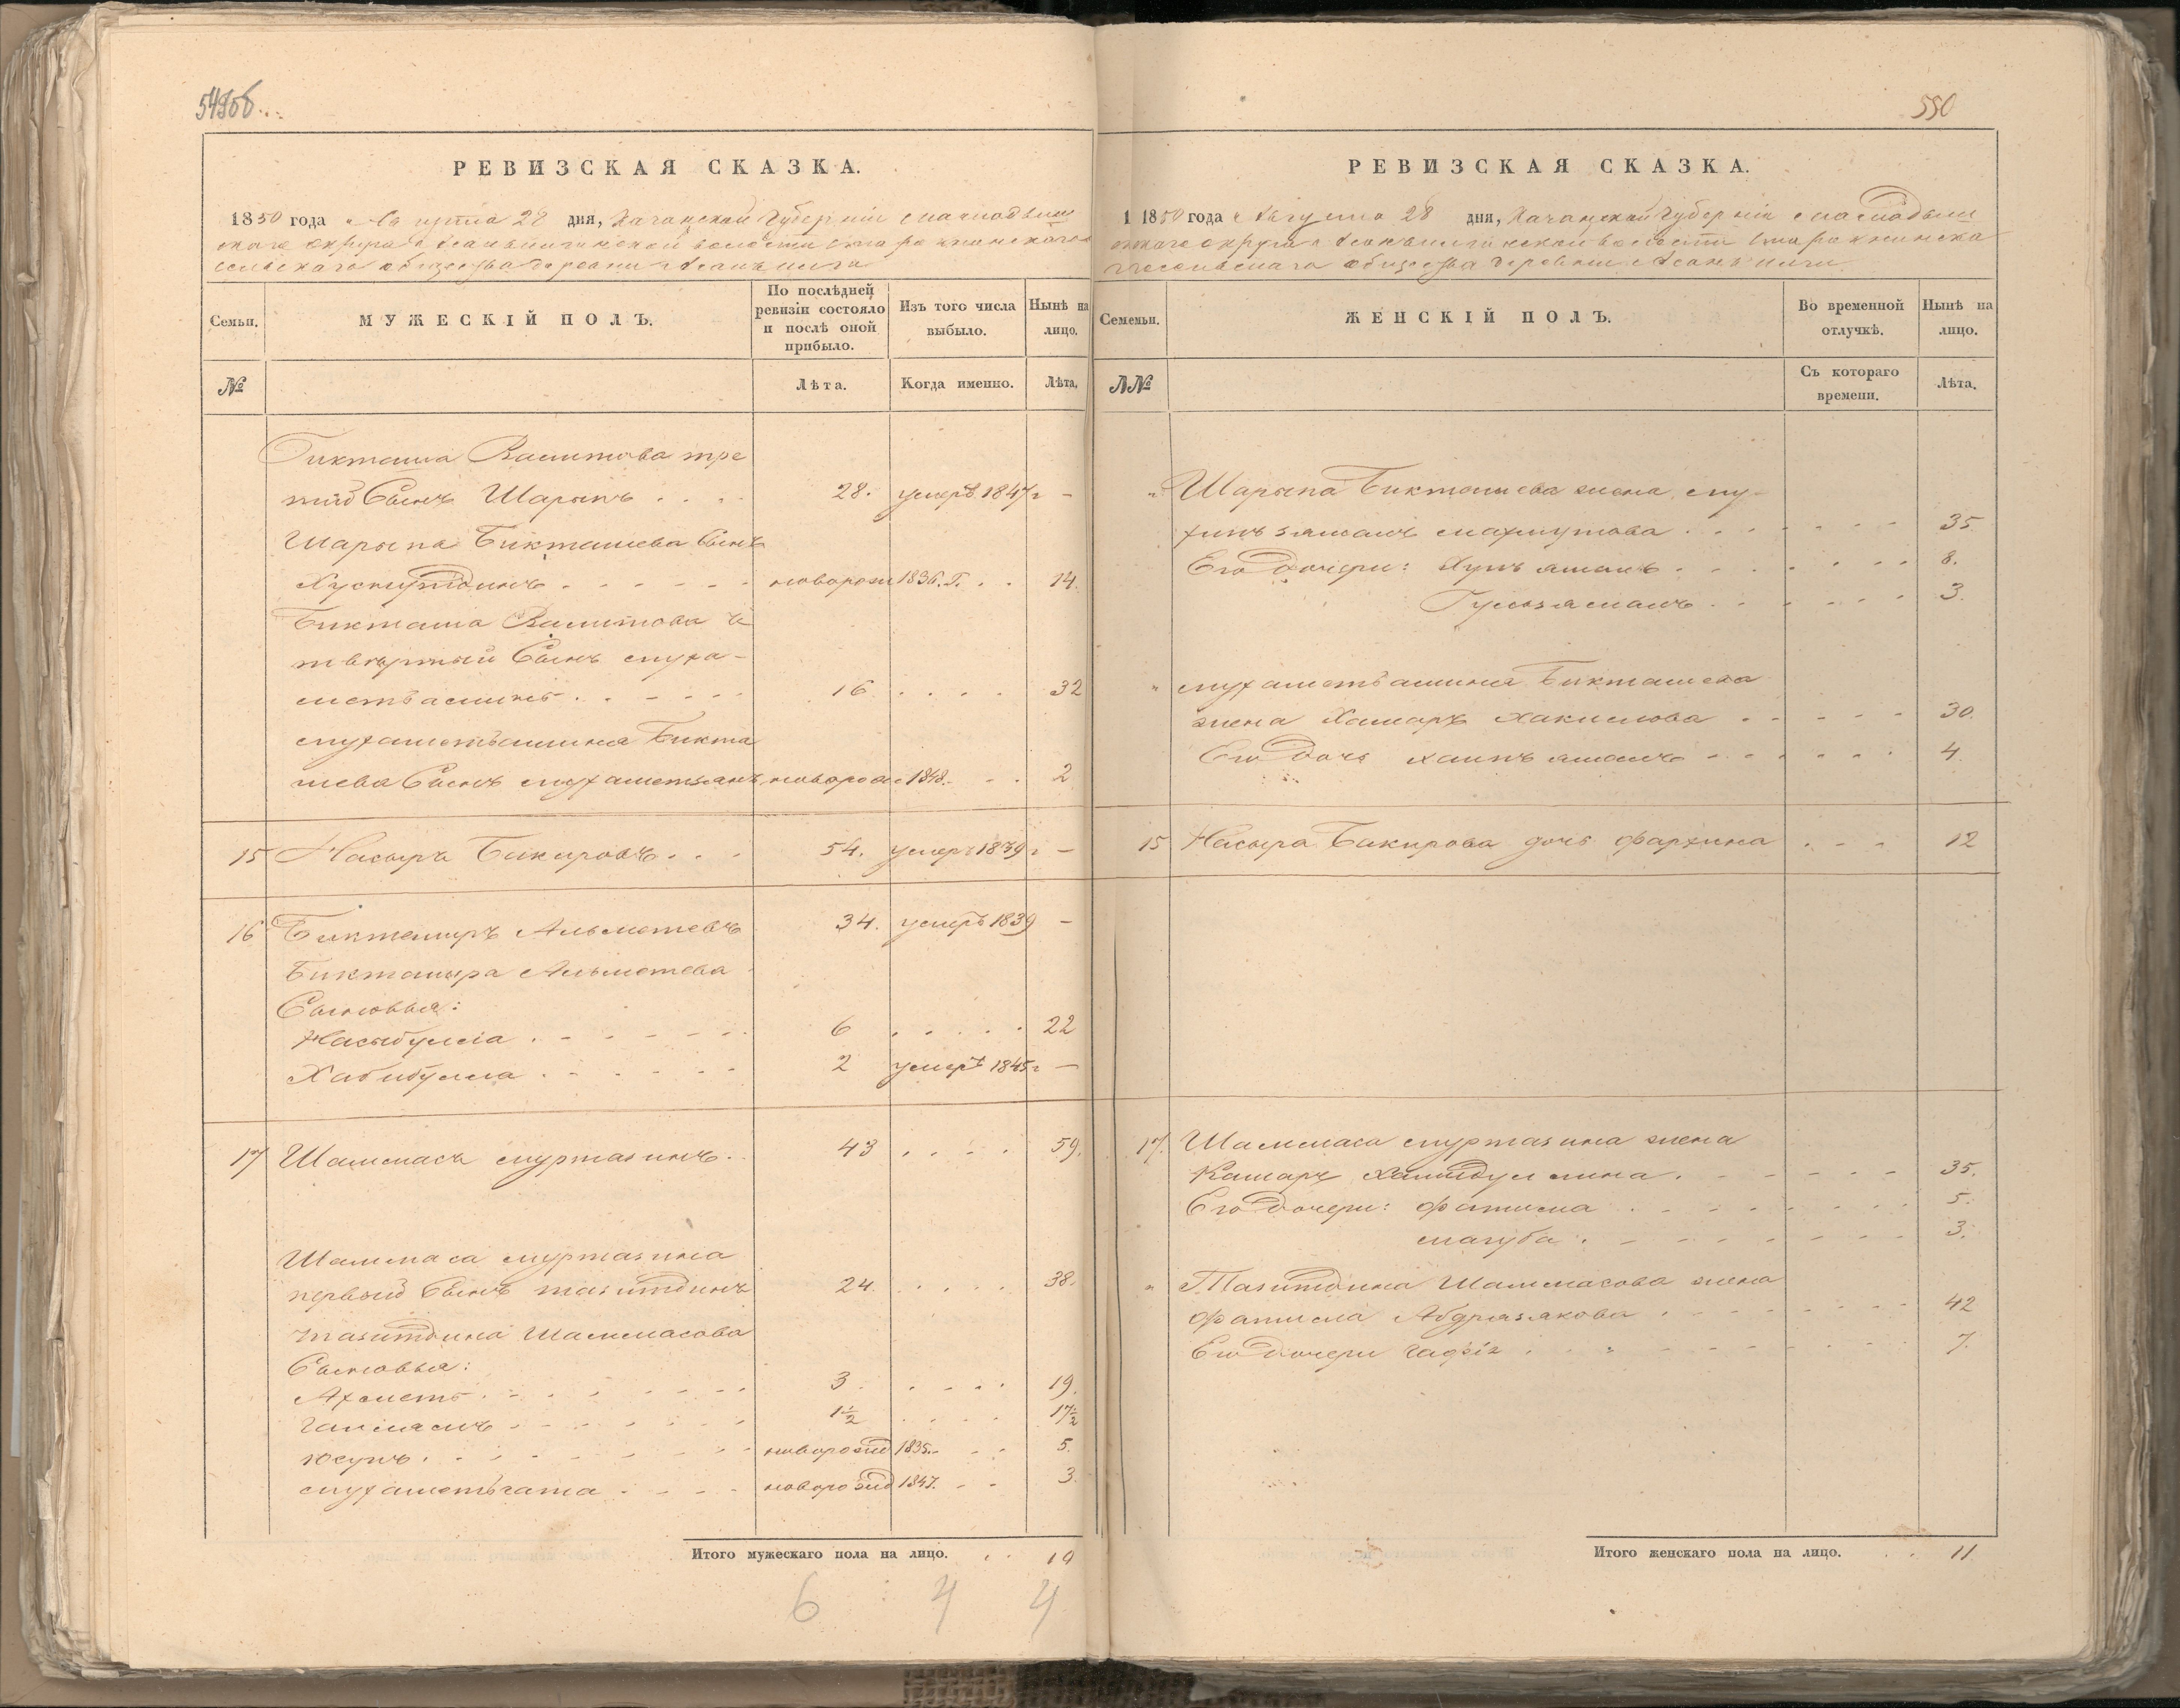 549об.
РЕВИЗСКАЯ СКАЗКА.
1850 года Августа 28 дня, Казанской Губерніи
округа волости
сельскаго общества деревни
Семьи.
МУЖЕСКІЙ ПОЛЪ.
По послѣдней ревизіи состояло и послѣ оной прибыло.
Изъ того числа выбыло.
Нынѣ на лицо.
№
Лѣта.
Когда именно.
Лѣта.
Бикташа Валитова тре
тій Сынъ Шарыпъ 28. умеръ 1847 г —
Шарыпа Бикташева Сынъ
Хуснутдинъ новорож 1836. Г. 14.
Бикташа Валитова че
твертый Сынъ Муха-
метьаминъ 16. 32
Мухаметьамина Бикта
шева Сынъ Мухаметзянъ новорож 1848. 2
15 Насыръ Бикировъ 54. умеръ 1839 г —
16 Биктемиръ Альметевъ 34. умеръ 1839 —
Биктемира Альметева
Сыновья:
Насыбулла 6 22
Хабибулла 2 умеръ 1845 г —
17 Шаммасъ Муртазинъ 43 59.
Шаммаса Муртазина
первый Сынъ Тазитдинъ 24. 38.
Тазитдина Шаммасова
Сыновья:
Ахметь 3. 19.
1½ 17½
Юсупъ новорожд 1835. 5.
Мухаметьгата новорожд 1847. 3.
Итого мужескаго пола на лицо. 10
6 4 4
550
РЕВИЗСКАЯ СКАЗКА.
1 1850 года Августа 28 дня, Казанской Губерніи
округа волости
общества деревни
Семеьи.
ЖЕНСКІЙ ПОЛЪ.
Во временной отлучкѣ.
Нынѣ на лицо.
№№
Съ котораго времени.
Лѣта.
" Шарыпа Бикташева жена Му-
Махмутова 35.
Его дочери: 8.
Гульзямалъ 3.
" Мухаметьамина Бикташева
жена Камаръ Хакимова 30.
Его дочь 4.
15 Насыра Бикирова дочь Фархина 12
17. Шаммаса Муртазина жена
Камаръ Халитдуллина 35.
Его дочери: Фатима 5.
Магуба 3.
" Тазитдина Шаммасова жена
Фатима Абдразякова 42
Его дочери 7.
Итого женскаго пола на лицо. 11